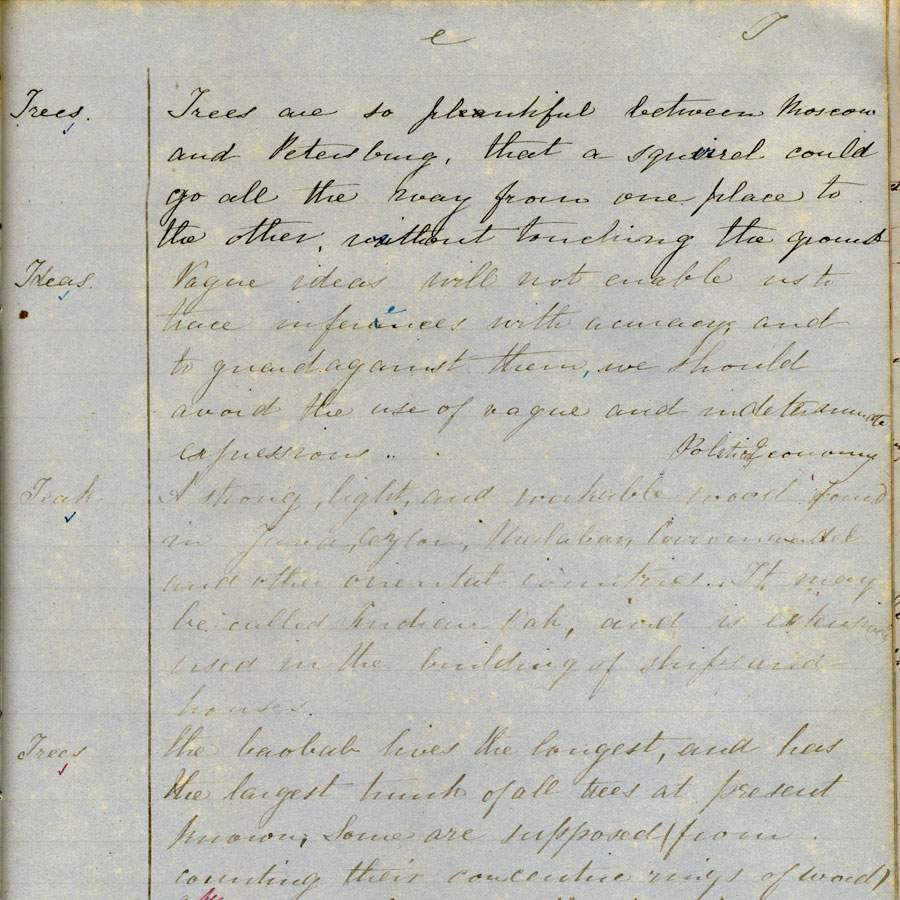 e T
Trees. Trees are so pleantiful between Moscow
and Petersburg, that a squirrel could
go all the way from one place to
the other, without touching the ground
Ideas. Vague ideas will not enable us to
trace inferences with accuracy, and
to guard against them, we should
avoid the use of vague and indeterminate
expressions.. Politic Economy
Teak. A strong, light, and workable wood found
in Java, Ceylon, Malabar, Coromandel
and other oriental countries. It may
be called Indian Oak, and is extensively
used in the building of ships and
houses.
Trees the baobab lives the longest, and has
the largest trunk of all trees at present
known; Some are supposed (from
counting their concentric rings of wood)